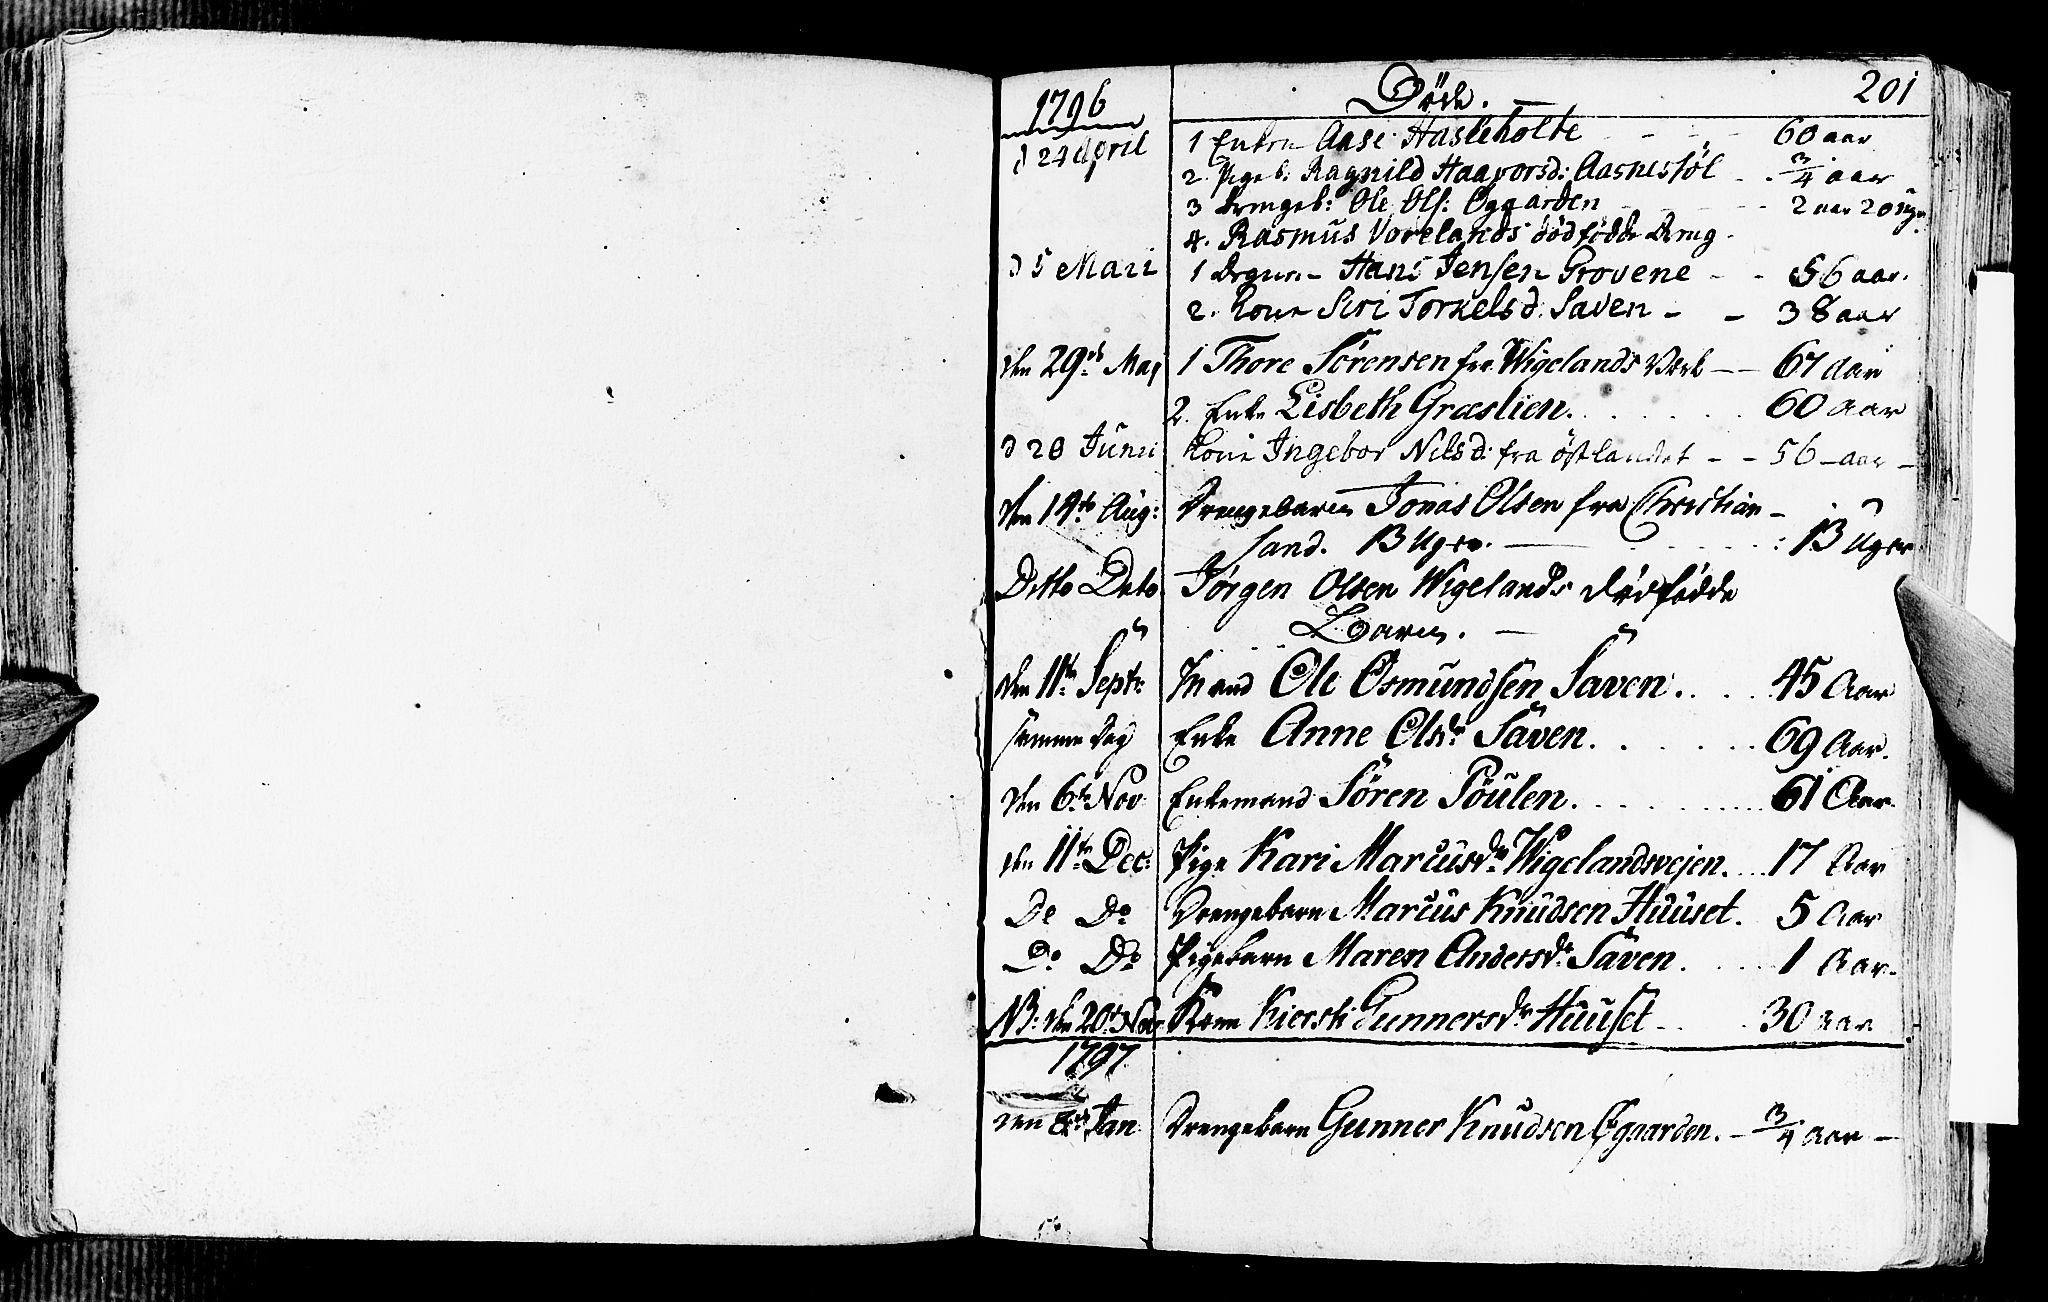 1796 Döde. 201
d 24 April 1 Enken Aase Hasleholte - - - - 60 aar
2. Pigeb: Ragnild Haavorsd: Aasnesföl - . 3/4 aar
3 Drengeb: Ole Ols: Øygaarden - - - 2 aar 20 Uger
4. Rasmus Vorelands dödfödde Dreng -
d 5 Maii 1 Hans Jensen Grovene - - 56 aar.
2. Kone Siri Torkelsd. Saven - - 38 aar
den 29de Maj 1 Thore Sörensen fra Wigelands Værk - - 67 aar
2. Enke Lisbeth Græslien. . . . . . 60 Aar
d 20 Junii Kone Ingebor Nilsd: fra östlandet - - 56 - aar -
den 14de Aug: Drengebarn Jonas Olsen fra Christian-
sand. 13 Uger. - - - - : 13 Uger.
Ditto Dato Jörgen Olsen Wigelands dödfödde
Barn. -
den 11te Septr: Mand Ole Osmundsen Saven. . . . 45 Aar
samme Dag Enke Anne Olsdr Saven. . . . . . 69 Aar.
den 6te Nov: Enkemand Sören Pöulen. . . . . . . 61 Aar.
den 11te Dec: Pige Kari Marcusdr Wigelandsvejen. . . . 17 Aar
Do Do Drengebarn Marcus Knudsen Huuset. 5 Aar
Do Do Pigebarn Maren Andersdr Saven. . . . . 1 Aar.
NB: den 20de Nov: Kone Kiersti Gunnersdr Huuset - . . 30 aar
1797
den 8de Jan: Drengebarn Gunner Knudsen Øgaarden. - 3/4 aar -